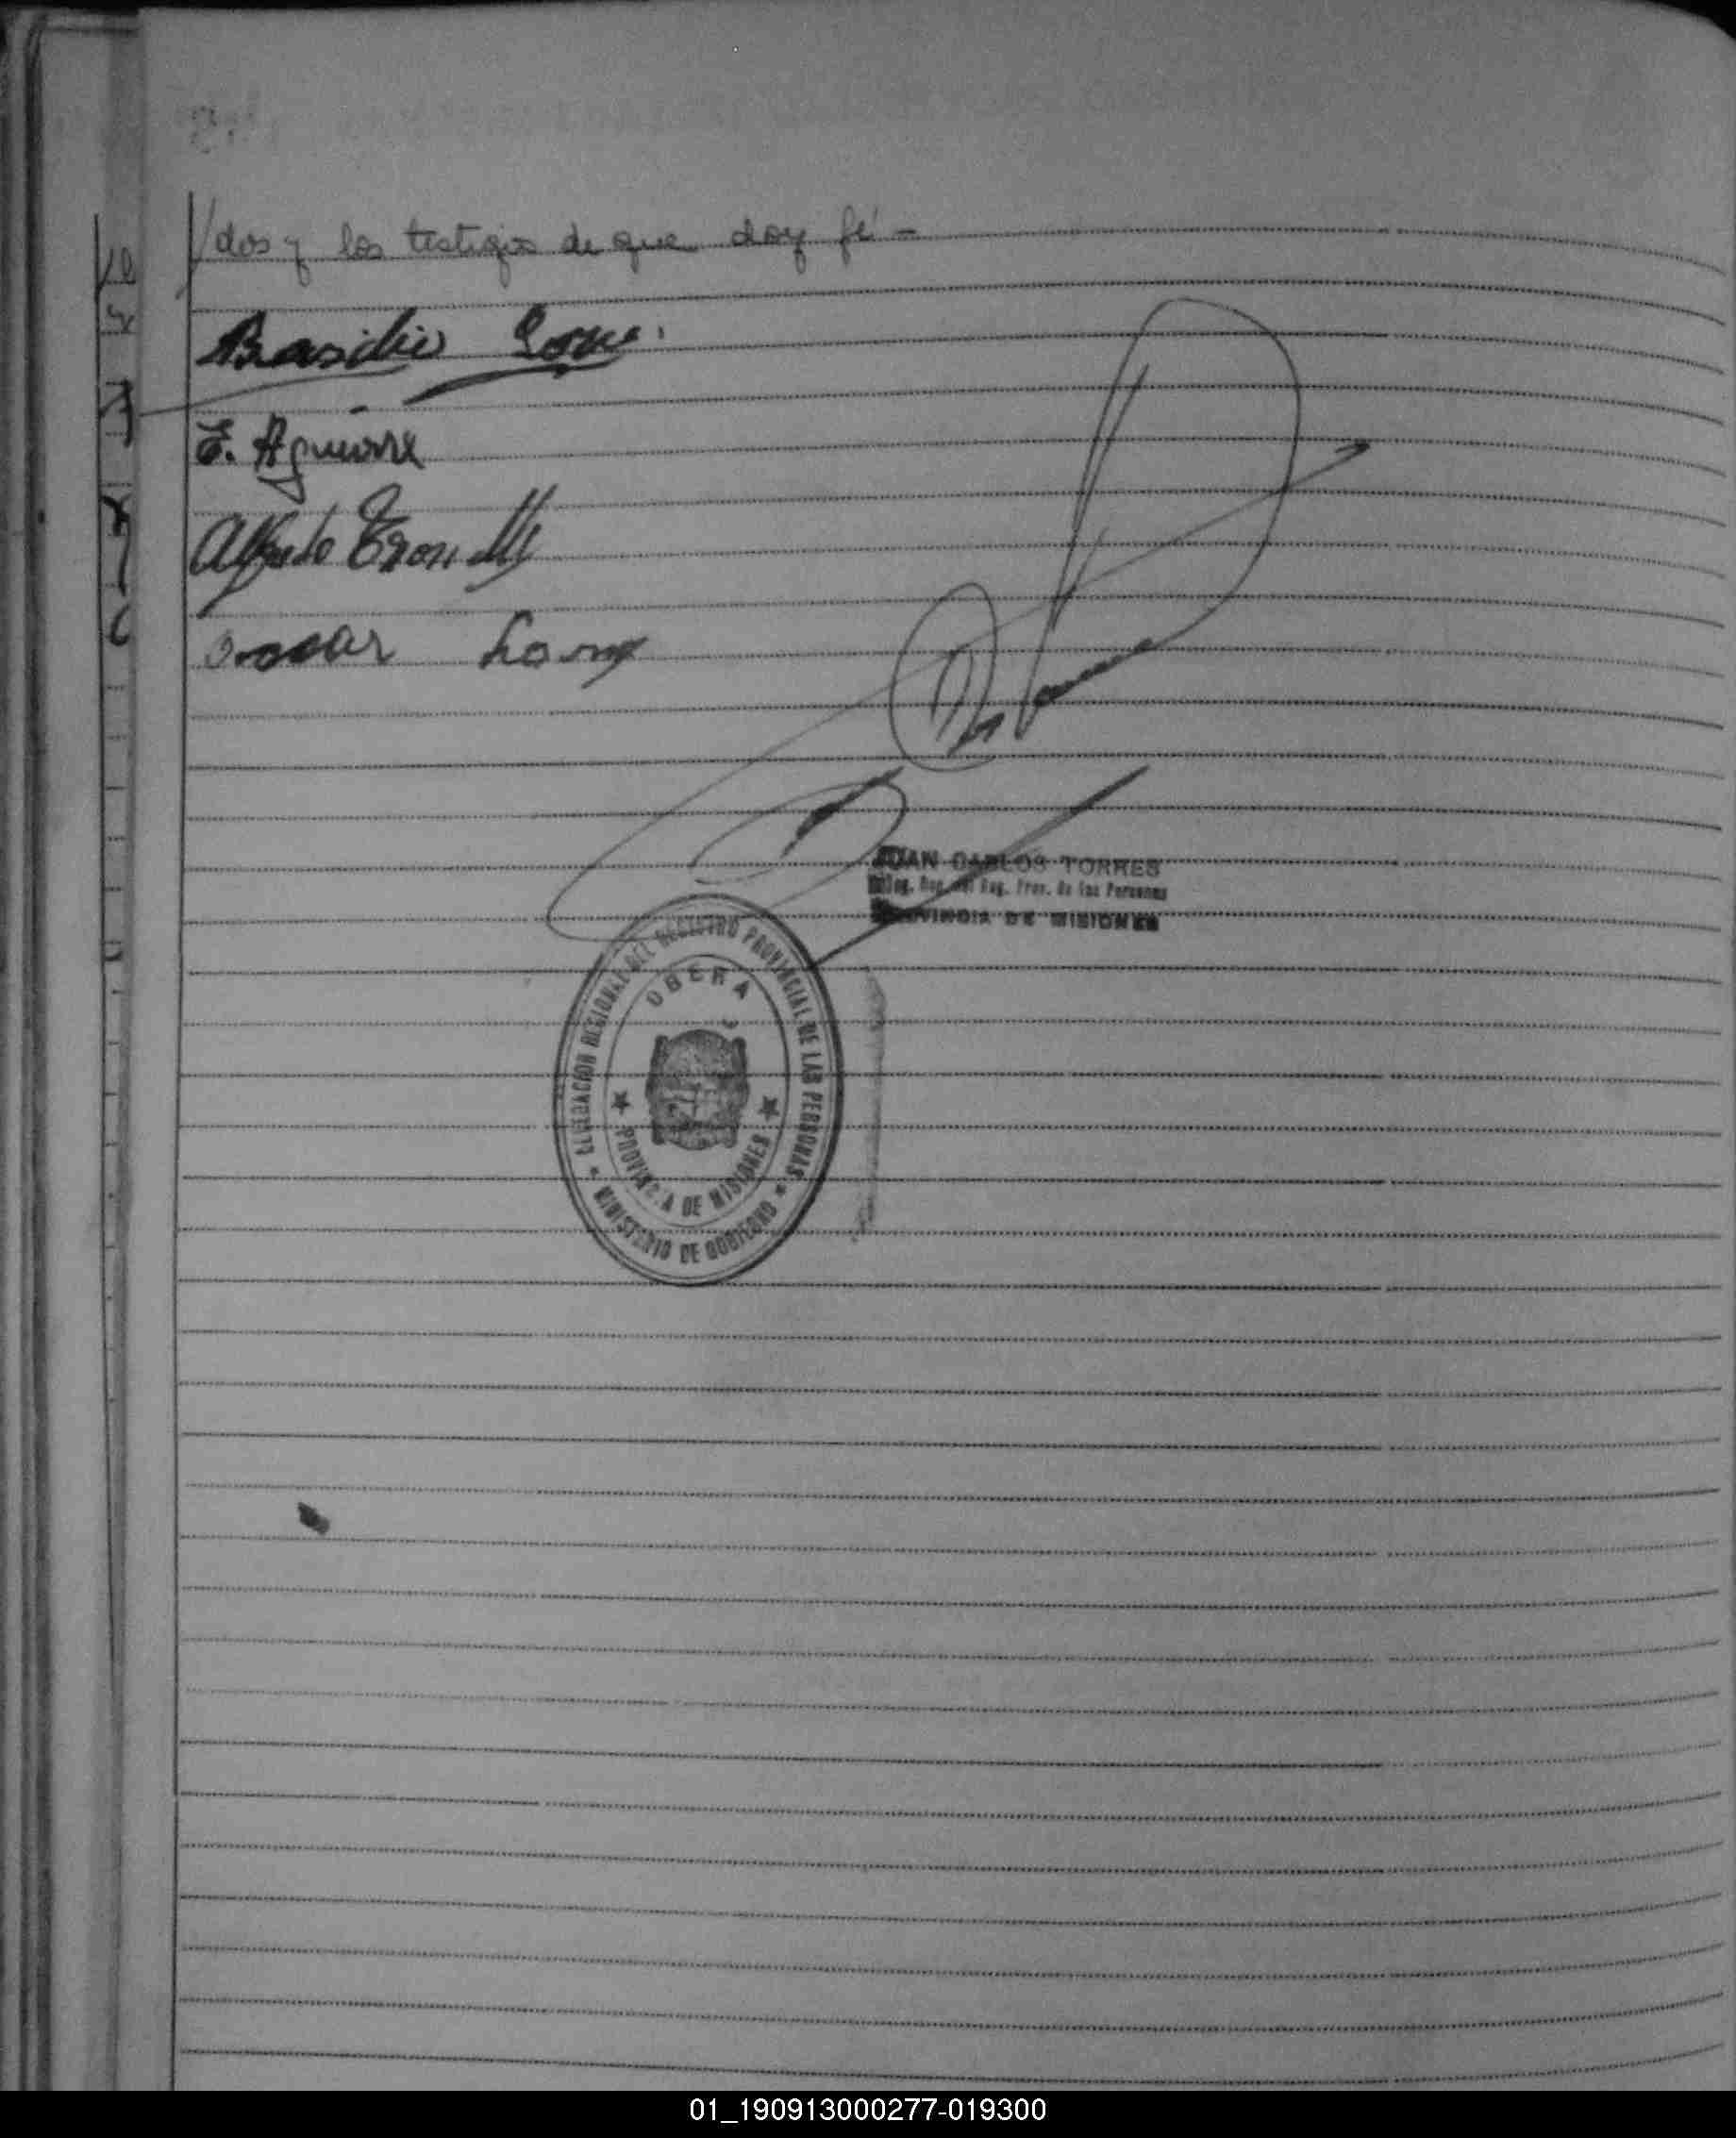 /dos y los testigos de que doy fé -
Basilio
E. Aguirre
Alfredo
Oscar
JUAN CARLOS TORRES
Reg. Prov. de las Personas
PROVINCIA DE MISIONES
DELEGACION REGIONAL DEL REGISTRO PROVINCIAL DE LAS PERSONAS
OBERA
PROVINCIA DE MISIONES
MINISTERIO DE GOBIERNO
01_190913000277-019300